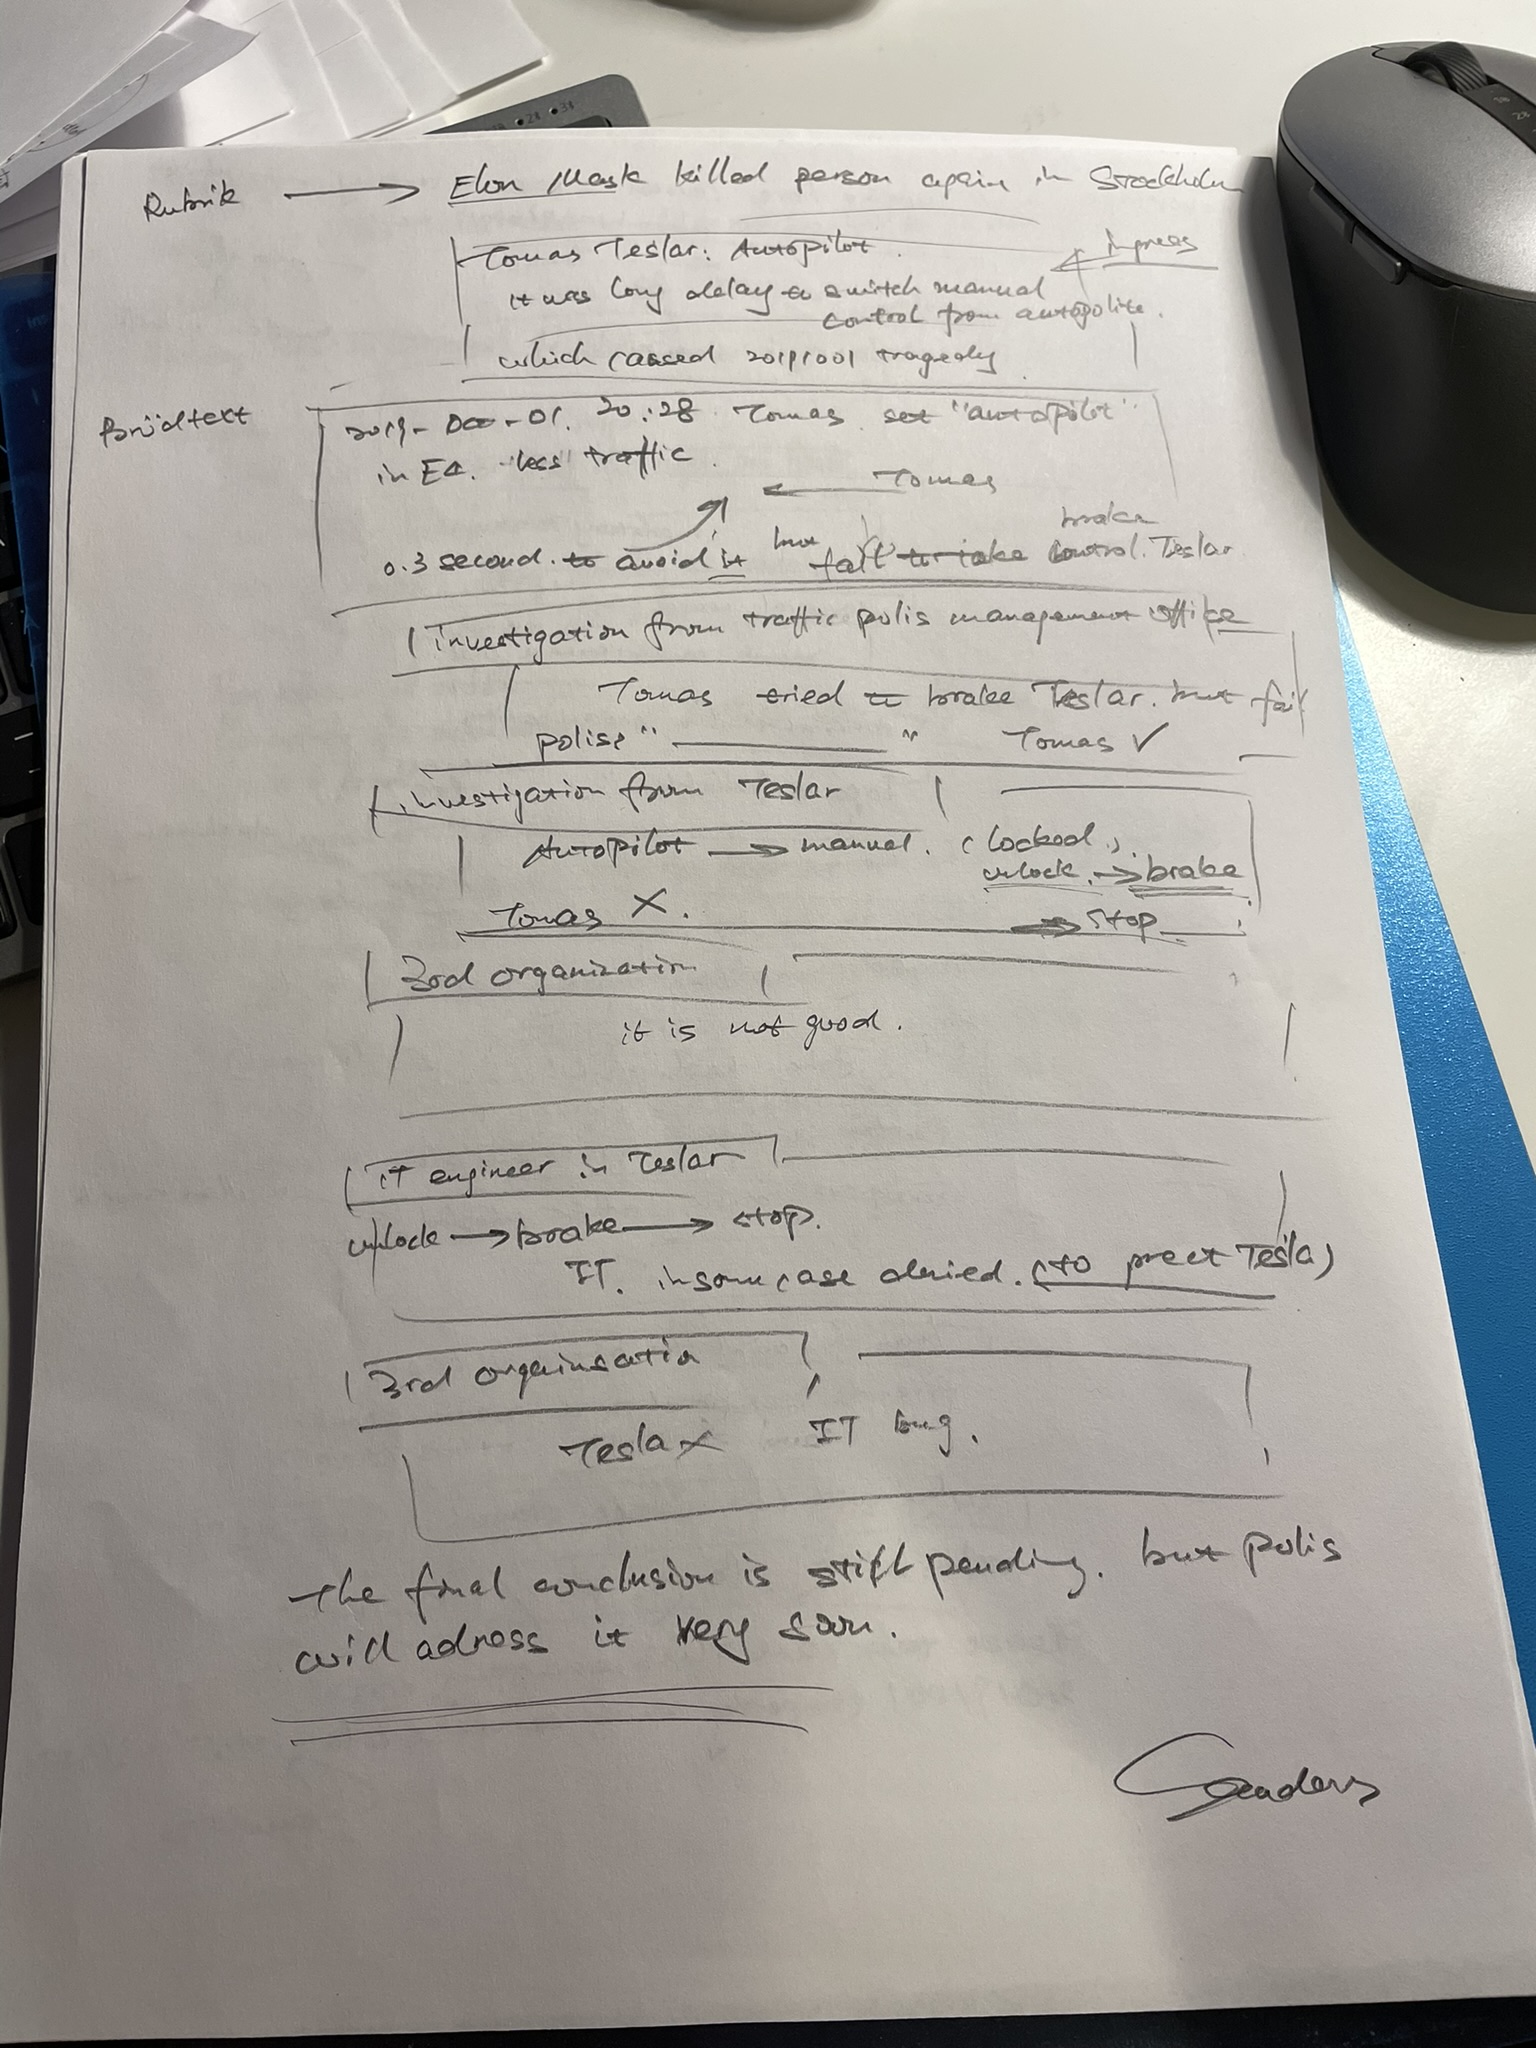 Rubrik → Elon Mask killed person again in Stockholm
Tomas Teslar: Autopilot. inpress
it was long delay to switch manual
control from autopolite.
which caused 20191001 tragedy
Brödtext
2019- Oct -01. 20:28 Tomas set "autopilot"
in E4. "less" traffic.
← Tomas
brake
0.3 second. to avoid it but fail to take control. Teslar
investigation from traffic polis management office
Tomas tried to brake Teslar. but fail
polise " " Tomas ✓
investigation from Teslar
Autopilot → manual. (locked),
unlock. → brake
Tomas X. → stop
3rd organization
it is not good.
IT engineer in Teslar
unlock → brake → stop.
IT. in some case denied. (to Tesla)
3rd
Tesla X IT bug.
The final conclusion is still pending. but polis
will adress it very soon.